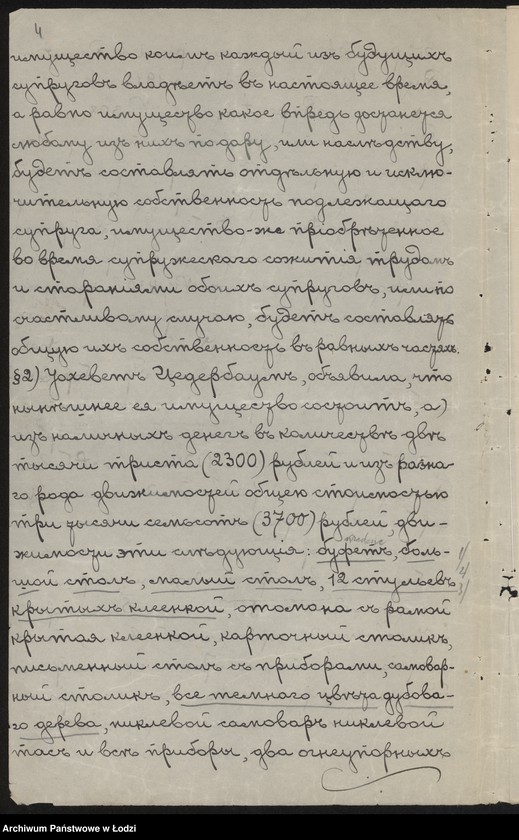 4
имущество коимъ каждый изъ будущихъ
супруговъ владѣетъ въ настоящее время,
а равно имущество какое впредь достанется
любому изъ нихъ по дару, или наслѣдству,
будетъ составлять отдѣльную и исклю-
чительную собственность подлежащаго
супруга, имущество-же приобрѣтенное
во время супружескаго сожитія трудомъ
и стараніями обоихъ супруговъ, или по
счастливому случаю, будетъ составлять
общую ихъ собственность въ равныхъ частяхъ.
§2) Іохеветъ Цедербаумъ, объявила, что
нынѣшнее ея имущество состоитъ, а)
изъ наличныхъ денегъ въ количествѣ двѣ
тысячи триста (2300) рублей и изъ разна-
го рода движимостей общею стоимостью
три тысячи семьсотъ (3700) рублей дви-
жимости эти слѣдующія: буфетъ, боль-
шой столъ, малый столъ, 12 стульевъ
крытыхъ клеенкой, отомана съ рамой
крытая клеенкой, карточный столикъ,
письменный столъ съ приборами, самовар-
ный столикъ, все темнаго цвѣта дубова-
го дерева, никлевой самоваръ никлевой
тасъ и всѣ приборы, два огнеупорныхъ
Archiwum Państwowe w Łodzi